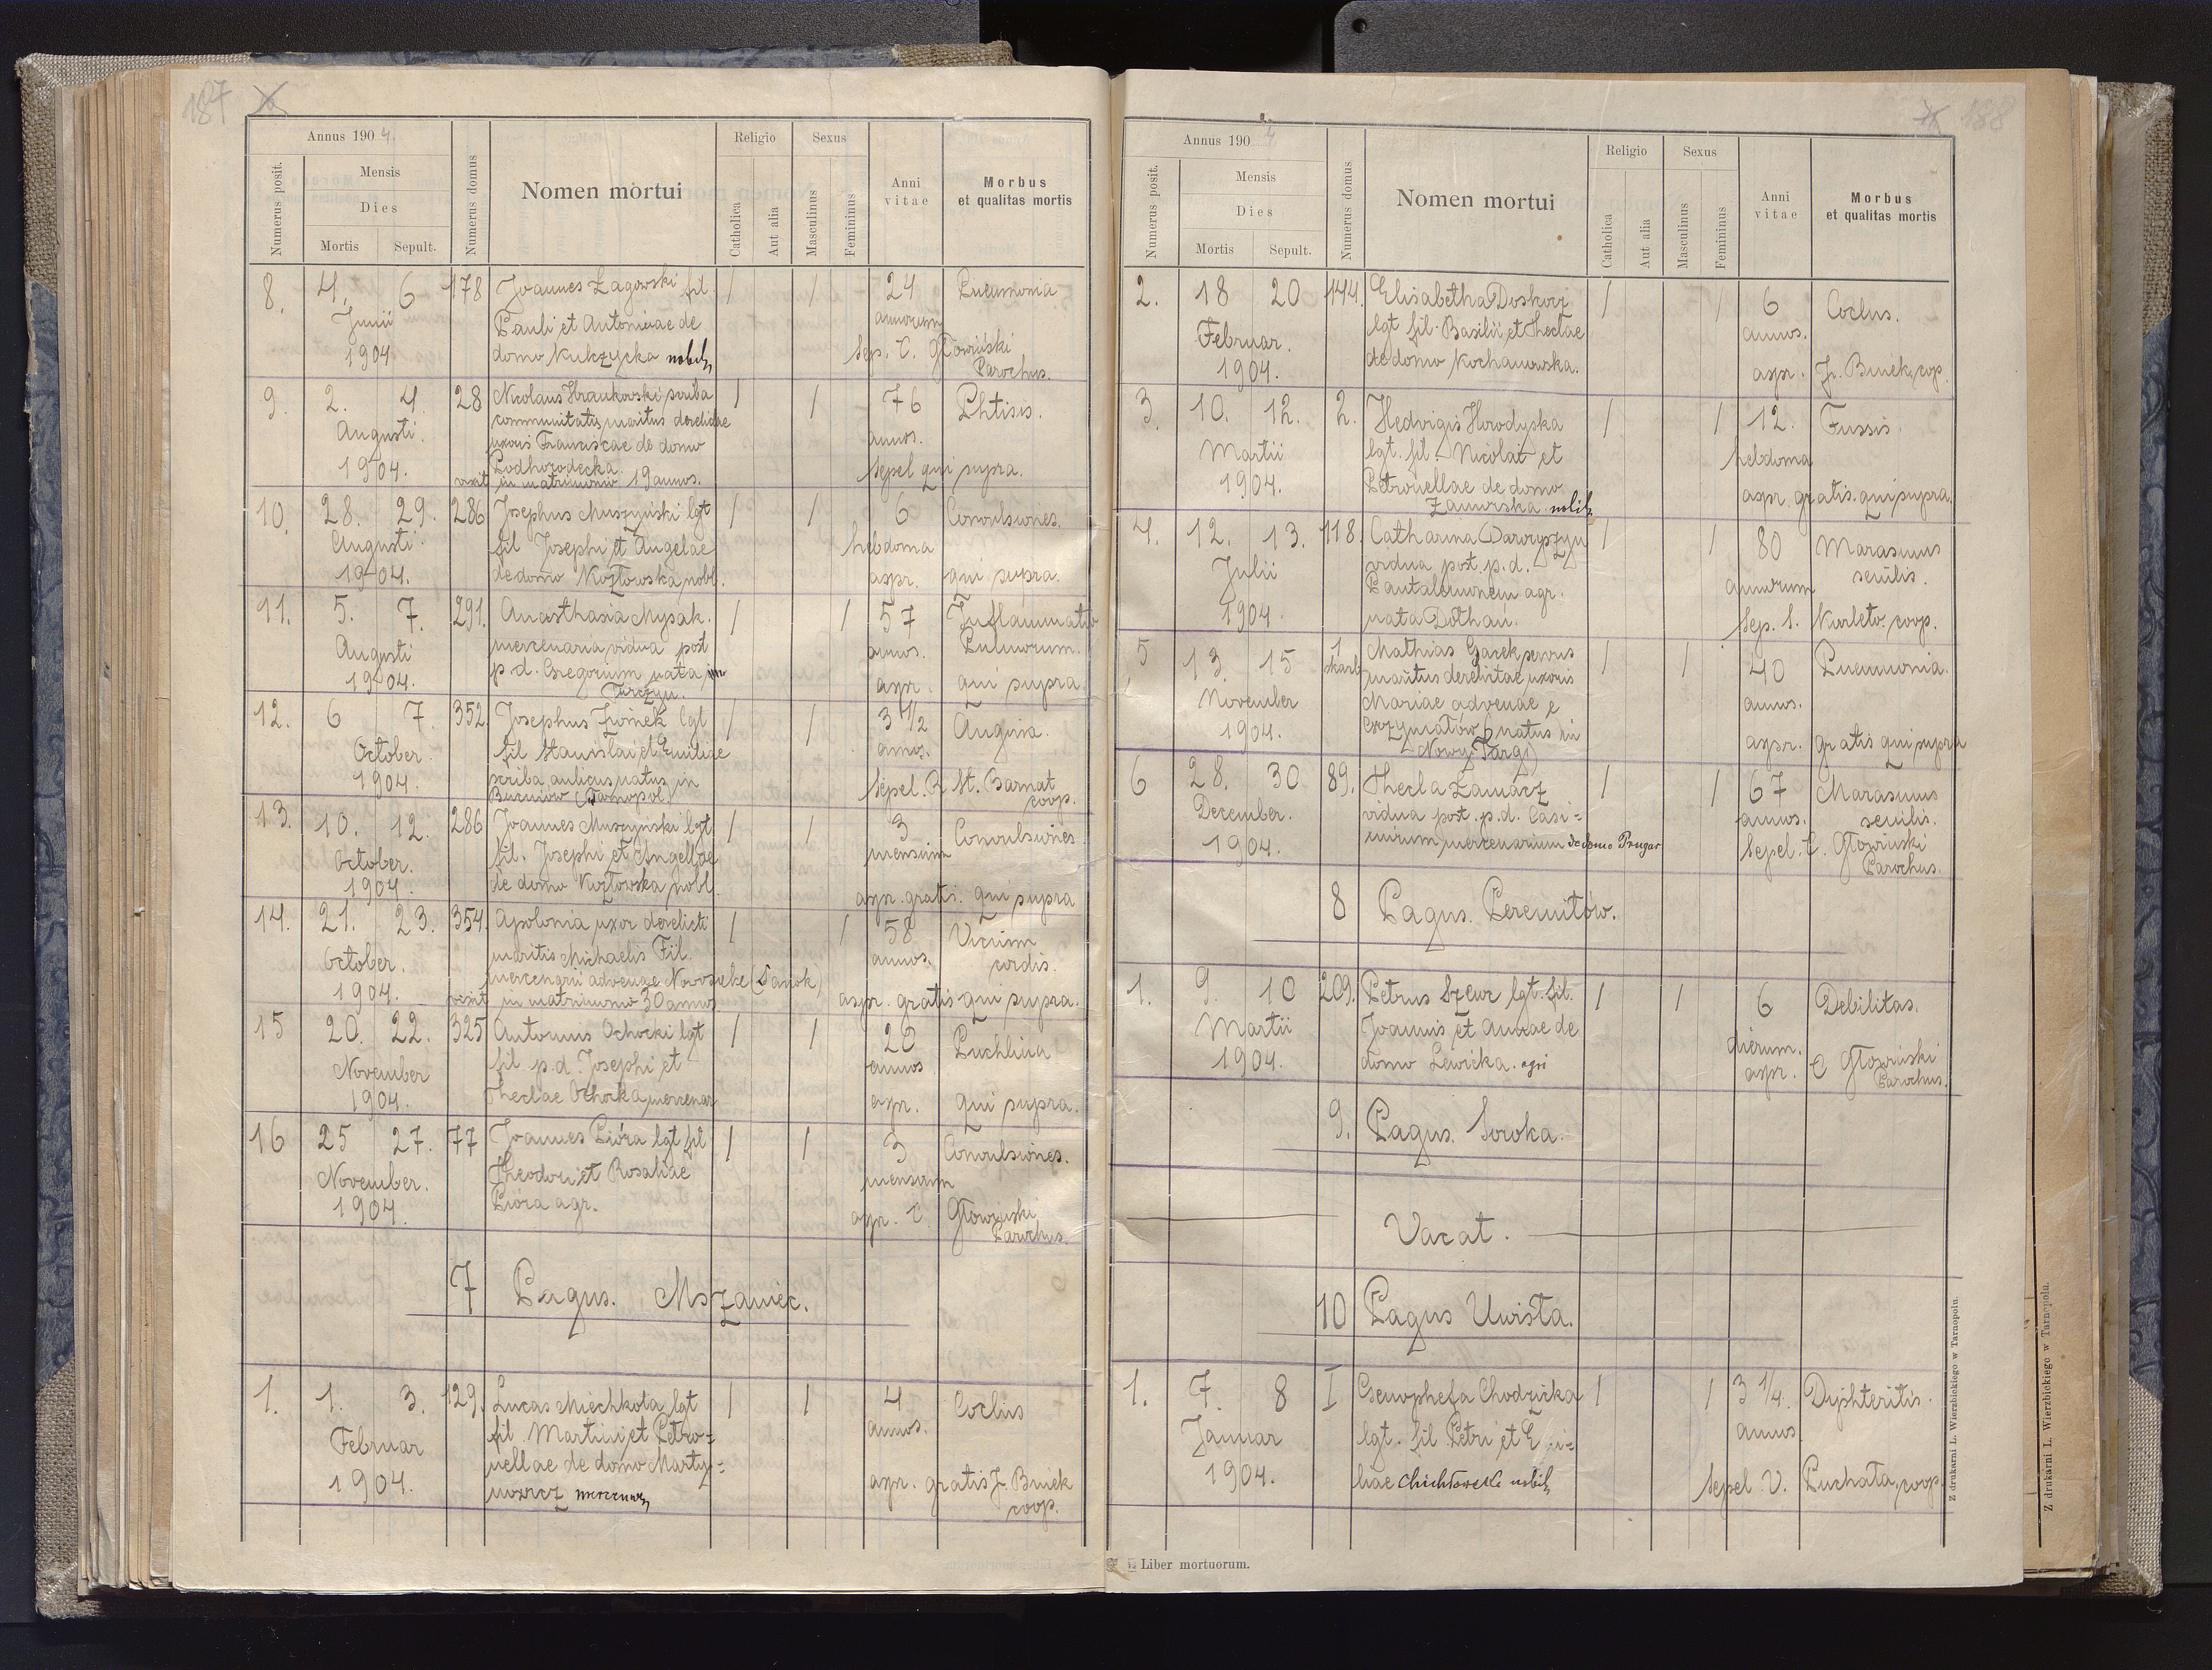 187
Annus 1904.
Numerus posit.
Mensis
Dies
Mortis Sepult.
Numerus domus
Nomen mortui
Religio
Catholica
Aut alia
Sexus
Masculinus
Femininus
Anni
vitae
Morbus
et qualitas mortis
8. 4. 6 178 Joannes Zagowski fil. / / 24 Pneumonia
Junii Pauli et Antoninae de annorum
1904 domo Kulczycka nobil. Sep. C. Głowiński
Parochus.
9. 2. 4. 28 Nicolaus Hraukowski scriba / / 76 Phtisis.
Augusti. communitatis, maritus derelictae annos.
uxoris Franciscae de domo
1904. Podhorodecka. Sepel qui supra.
vixit in matrimonio 19 annos.
10. 28. 29. 286 Josephus Muszyński lgt / / 6 Convulsiones.
Augusti. fil Josephi et Angelae hebdoma
1904. de domo Kozłowska, nobl. aspr. qui supra.
11. 5. 7. 291. Anasthasia Mysak. / / 57 Inflammatio
Augusti mercenaria vidua post annos. Pulmorum.
1904. p. d. Gregorium nata in aspr. qui supra
12. 6 7. 352. Josephus lgt / / 3 1/2 Angina.
October fil Stanislai et Emiliae annos.
1904. scriba aulicus, natus in Sepel. R St. Barnat
(Tarnopol) coop.
13. 10. 12. 286 Joannes Muszyński lgt. / / 3 Convulsiones
October. fil. Josephi et Angellae mensium
1904. de domo Kozłowska nobl. aspr. gratis. qui supra
14. 21. 23. 354. Apolonia uxor derelicti / / 58 Vicium
October. maritis Michaelis Fil. annos. cordis.
1904. mercenarii advenae Nowosielce (Sanok)
vixit in matrimonio 30 annos aspr. gratis qui supra.
15 20. 22. 325 Antonius Ochocki lgt / / 20 Puchlina
November fil p. d. Josephi et annos
1904. Theclae Ochocka, mercenar aspr. qui supra.
16 25 27. 77 Joannes Pióra lgt fil / / 3 Convulsiones.
November. Theodori et Rosaliae mensium
1904. Pióra agr. aspr. C. Głowiński
Parochus.
7 Pagus. Mszaniec.
1. 1. 3. 129. Lucas Miechkota lgt / / 4 Coclus
Februar fil Martini et Petro- annos.
1904. nellae de domo Marty-
nowicz mercenar. aspr. gratis J. Bruek
coop.
188
Annus 1904
Numerus posit.
Mensis
Dies
Mortis Sepult.
Numerus domus
Nomen mortui
Religio
Catholica
Aut alia
Sexus
Masculinus
Femininus
Anni
vitae
Morbus
et qualitas mortis
2. 18 20 144. Elisabetha Doskocz / / 6 Coclus.
Februar. lgt fil. Basilii et Theclae annos.
1904. de domo Kochanowska. aspr. J. Bruek, cop.
3. 10. 12. 2. Hedvigis Horodyska / / 12. Tussis.
Martii lgt. fil. Nicolai et hebdoma
1904. Petronellae de domo aspr. gratis. qui supra.
nobil.
4. 12. 13. 118. Catharina / / 80 Marasmus
Julii vidua post. p. d. annorum senilis.
Pantaleonem agr.
1904. nata Dółhań. Sep. S. coop.
5 13. 15 1 Mathias Gacek servus / / 40 Pneumonia.
skarb maritus derelictae uxoris
November Mariae advenae e annos.
1904. (natus in
Nowy Targ) aspr. gratis qui supra
6 28. 30 89. Thecla Zamarz / / 67 Marasmus
December. vidua post. p. d. Casi- annos. senilis.
1904. mirum mercenarium de domo Prugar Sepel. C. Głowiński
Parochus.
8 Pagus. Peremitów.
1. 9. 10 209. Petrus Szewc lgt. fil. / / 6 Debilitas.
Martii Joannis et Annae de dierum.
1904. domo Lewicka. agri aspr. C Głowiński
Parochus.
9. Pagus. Soroka.
Vacat.
10 Pagus Uwisła.
1. 7. 8 I Csenophefa Chodzicka / / 3 1/4. Diphteritis.
Januar lgt. fil Petri et annos.
1904. nobil. Sepel V. Puchała, coop.
Liber mortuorum.
Z drukarni L. Wierzbickiego w Tarnopolu.
Z drukarni L. Wierzbickiego w Tarnopolu.